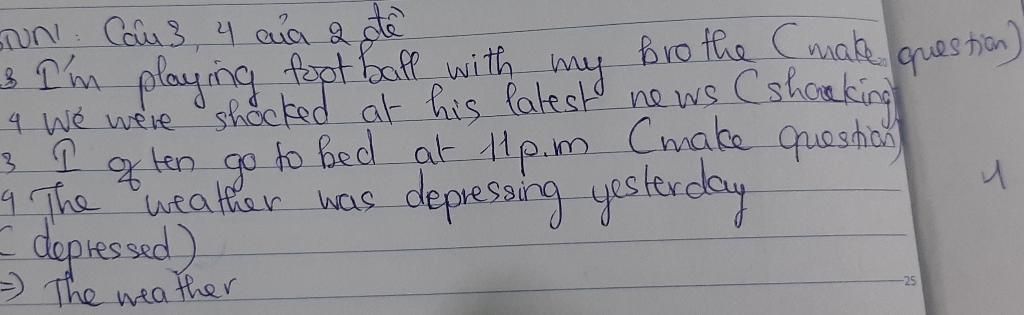 : Câu 3, 4 của 2 đề
3 I'm playing foot ball with my brothe (make question)
4 We were shocked at his latest news (shocking)
3 I often go to bed at 11p.m (make question)
4 The weather was depressing yesterday
(depressed)
=) The weather
25